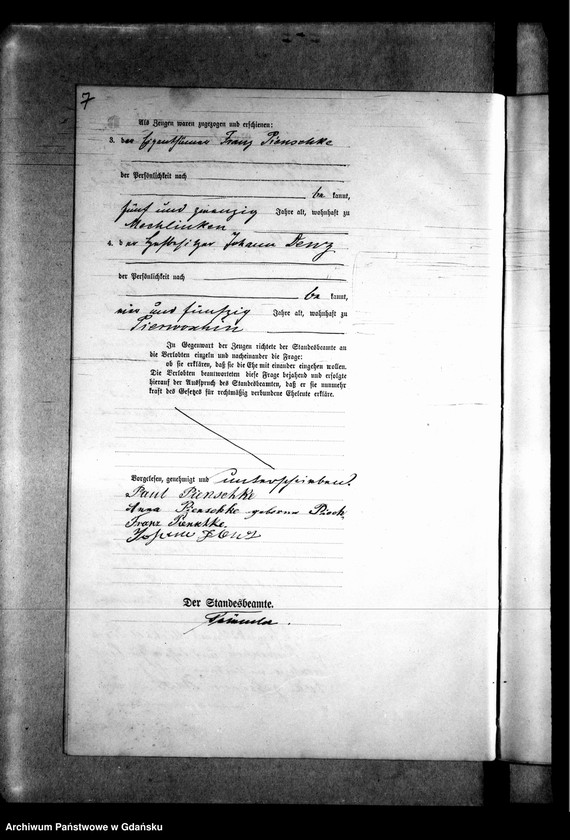 7
Als Zeugen waren zugezogen und erschienen:
3. der Eigenthümer Franz Pienschke
der Persönlichkeit nach
be kannt,
fünf und zwanzig Jahre alt, wohnhaft zu
Mechlinken
4. der Hofbesitzer Johann Denz
der Persönlichkeit nach
be kannt,
ein und fünfzig Jahre alt, wohnhaft zu
Pierwoschin
In Gegenwart der Zeugen richtete der Standesbeamte an
die Verlobten einzeln und nacheinander die Frage:
ob sie erklären, daß sie die Ehe mit einander eingehen wollen.
Die Verlobten beantworteten diese Frage bejahend und erfolgte
hierauf der Ausspruch des Standesbeamten, daß er sie nunmehr
kraft des Gesetzes für rechtmäßig verbundene Eheleute erkläre.
Vorgelesen, genehmigt und unterschrieben
Paul Pienschke
Anna Pienschke geborene
Franz Pienschke
Johann Denz
Der Standesbeamte.
Archiwum Państwowe w Gdańsku